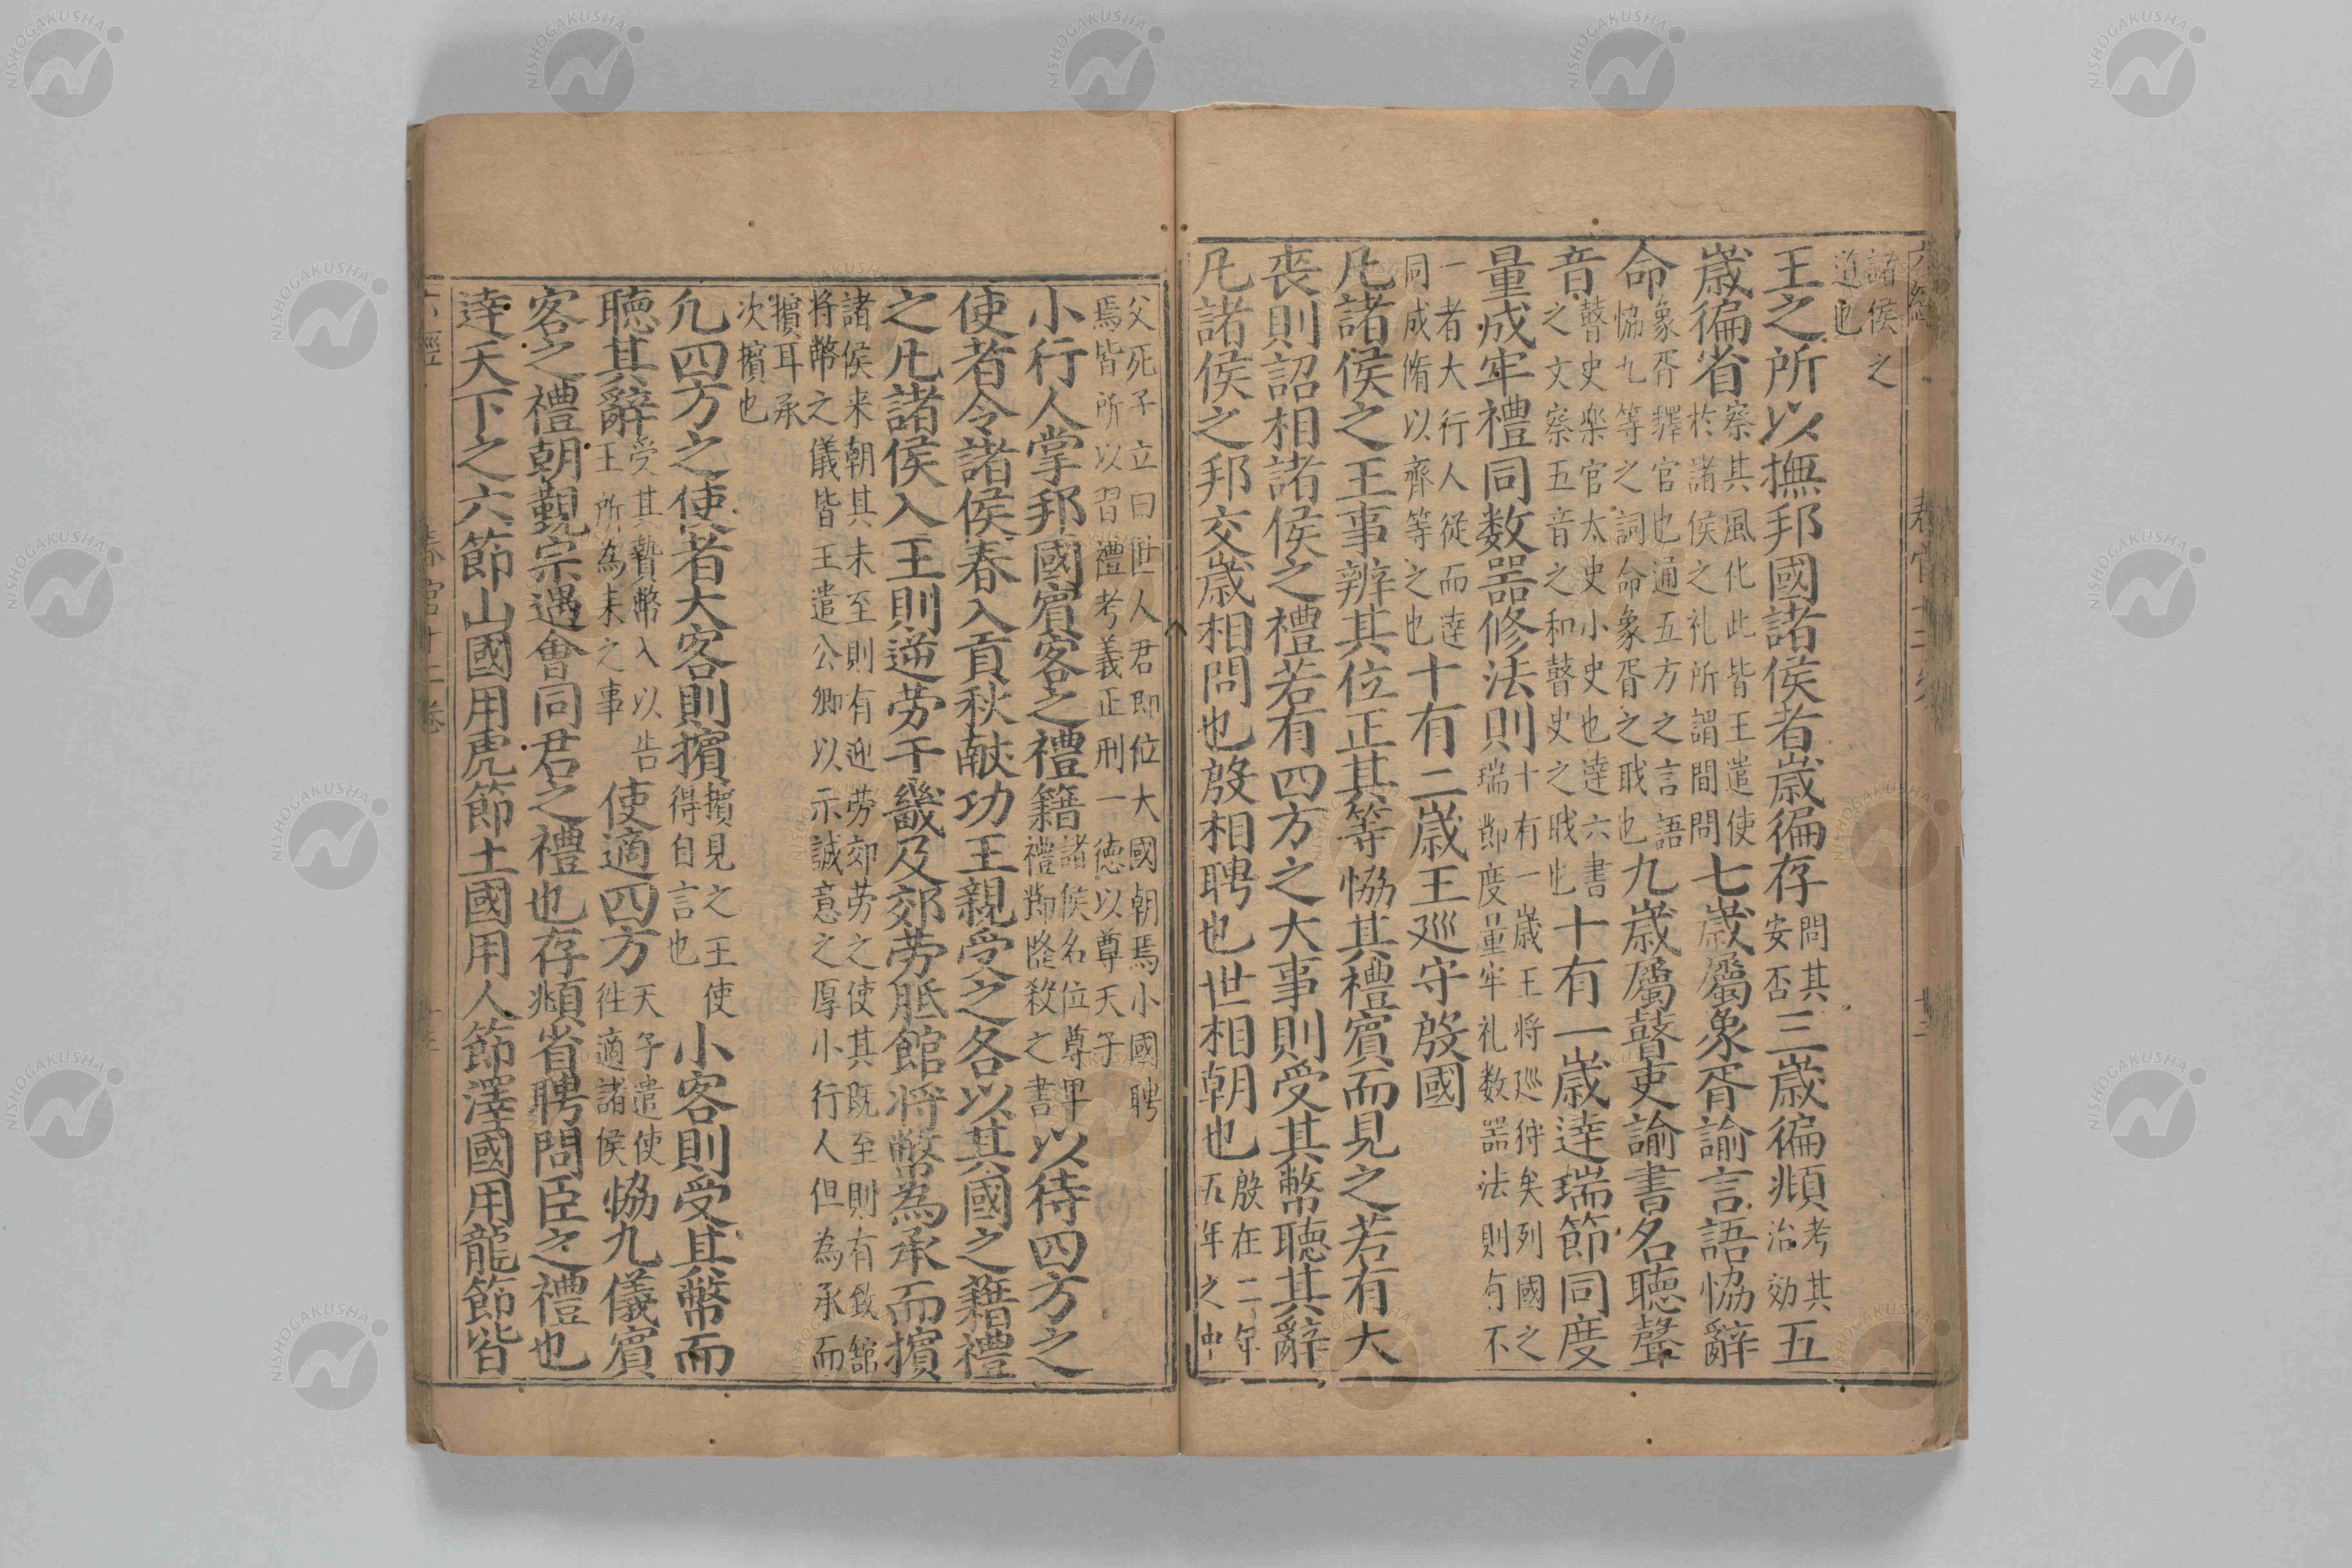 諸侯之
道也
王之所以撫邦國諸侯者歲徧存問其安否三歲徧頫考其治効五
歲徧省察其風化此皆王遣使於諸侯之礼所謂間問七歲屬象胥諭言語恊辭
命象胥繹官也通五方之言語恊九等之詞命象胥之職也九歲屬瞽吏諭書名聽聲
音瞽史楽官太史小史也逹六書之文察五音之和瞽史之職也十有一歲逹瑞節同度
量成牢禮同数噐修法則十有一歲王将廵狩矣列國之瑞節度量牢礼数噐法則有不
一者大行人從而逹同成脩以齊等之也十有二歲王廵守殷國
凡諸侯之王事辨其位正其等恊其禮賓而見之若有大
喪則詔相諸侯之禮若有四方之大事則受其幣聽其辭
凡諸侯之邦交歲相問也殷相聘也世相朝也殷在二年五年之中
父死子立曰世人君即位大國朝焉小國聘
焉皆所以習禮考義正刑一德以尊天子
小行人掌邦國賓客之禮籍諸侯名位尊卑禮節隆殺之書以待四方之
使者令諸侯春入貢秋献功王親受之各以其國之籍禮
之凡諸侯入王則逆劳于畿及郊劳眡館将幣為承而擯
諸侯来朝其未至則有迎劳郊劳之使其既至則有致舘
将幣之儀皆王遣公卿以示誠意之厚小行人但為承而
擯耳承
次擯也
凢四方之使者大客則擯擯見之王使得自言也小客則受其幣而
聽其辭受其贄幣入以告王所為来之事使適四方天子遣使徃適諸侯恊九儀賓
客之禮朝覲宗遇會同君之禮也存頫省聘問臣之禮也
逹天下之六節山國用虎節土國用人節澤國用龍節皆